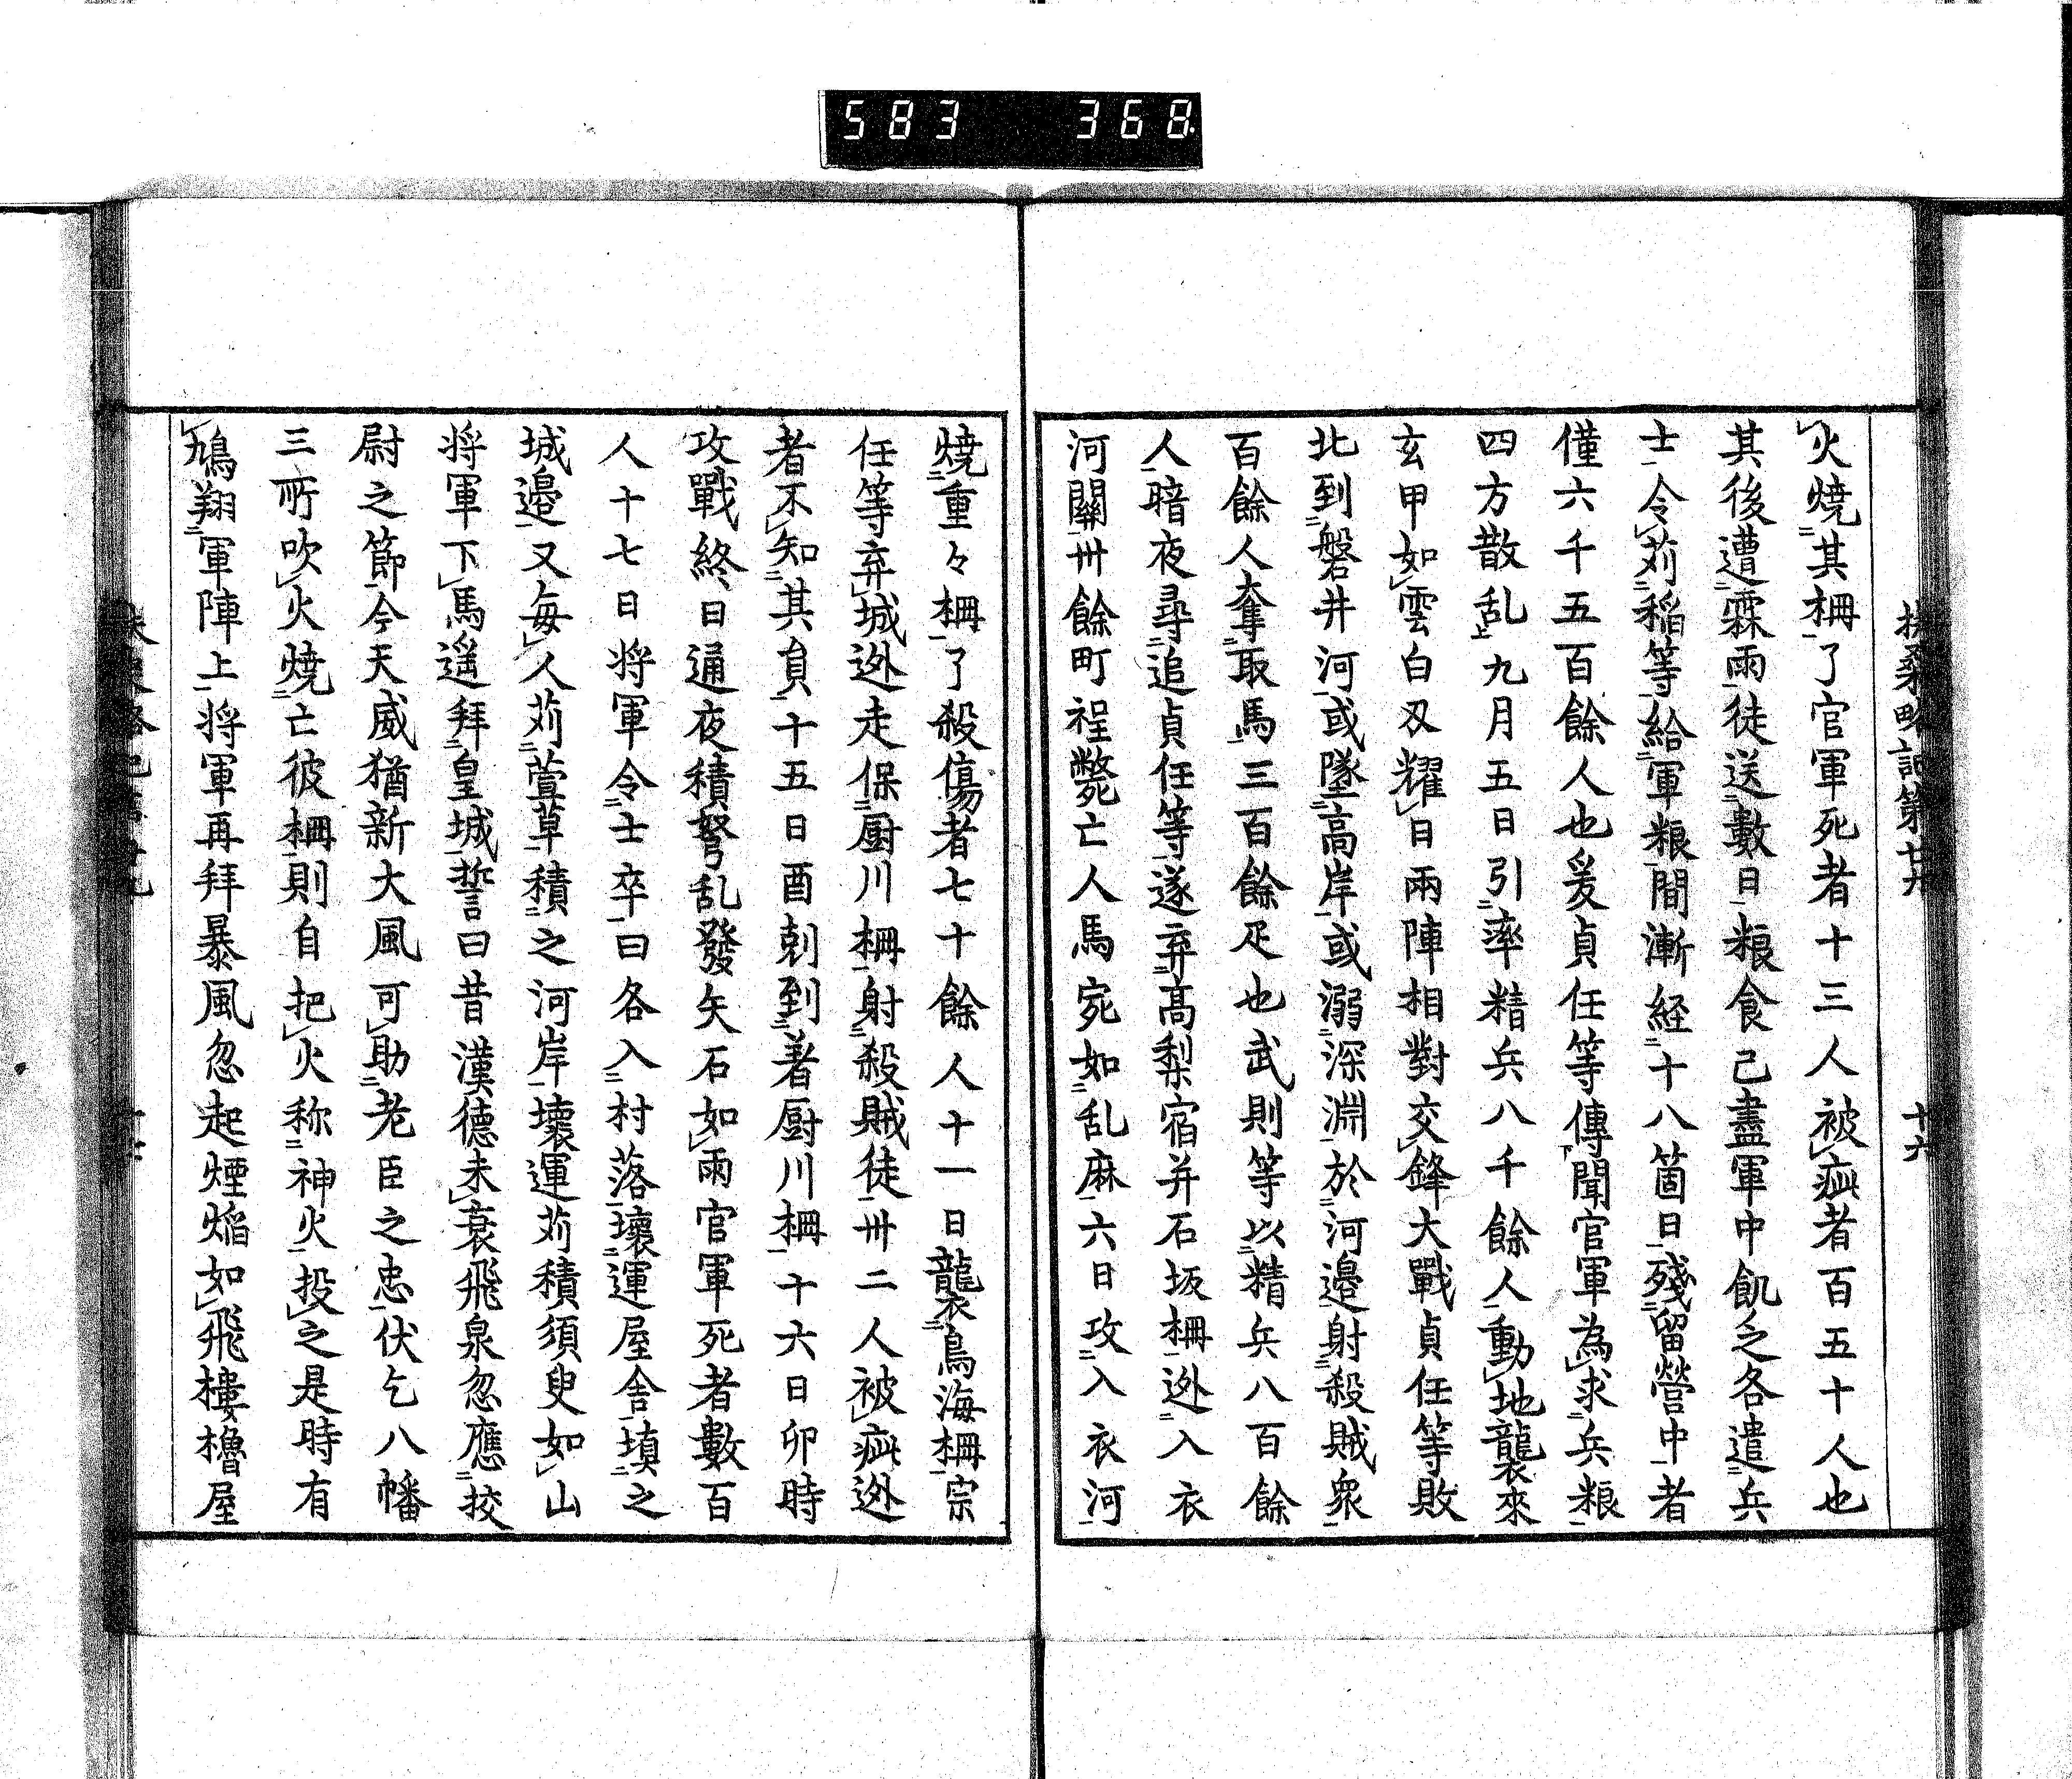 583 368
扶桑略記第廿九 十六
火燒㆓其柵㆒了官軍死者十三人被㆑疵者百五十人也
其後遭㆓霖雨㆒徒送㆓數日㆒粮食己盡軍中飢乏各遣㆓兵
士㆒令㆑苅㆓稻等㆒給㆓軍粮㆒間漸経㆓十八箇日㆒殘㆓留營中㆒者
僅六千五百餘人也爰貞任等傳㆘聞官軍為㆑求㆓兵粮㆒
四方散乱㆖九月五日引㆓率精兵八千餘人㆒動㆑地襲來
玄甲如㆑雲白刄耀㆑日兩陣相對交㆑鋒大戰貞任等敗
北到㆓磐井河㆒或墜㆓高岸㆒或溺㆓深淵㆒於㆓河邉㆒射㆓殺賊衆㆒
百餘人奪㆓取馬㆒三百餘疋也武則等以㆓精兵八百餘
人㆒暗夜尋㆓追貞任等㆒遂弃㆓高梨宿并石坂柵㆒迯㆓入衣
河關㆒卅餘町程斃亡人馬宛如㆓乱麻㆒六日攻㆓入衣河㆒
燒㆓重々柵㆒了殺傷者七十餘人十一日襲㆓鳥海柵㆒宗
任等弃㆑城迯走保㆓厨川柵㆒射㆓殺賊徒㆒卅二人被㆑疵迯
者不㆑知㆓其員㆒十五日酉刻到㆓着厨川柵㆒十六日卯時
攻戰終日通夜積弩乱發矢石如㆑雨官軍死者數百
人十七日将軍令㆓士卒㆒曰各入㆓村落㆒壞㆓運屋舍㆒填㆓之
城邉㆒又毎㆑人苅㆓萱草㆒積㆓之河岸㆒壞運苅積須臾如㆑山
将軍下㆑馬遥拜㆓皇城㆒誓曰昔漢德未㆑衰飛泉忽應㆓挍
尉之節㆒今天威猶新大風可㆑助㆓老臣之忠㆒伏乞八幡
三所吹㆑火燒㆓亡彼柵㆒則自把㆑火称㆓神火㆒投㆑之是時有
㆑鳩翔㆓軍陣上㆒将軍再拜暴風忽起煙焔如㆑飛樓櫓屋